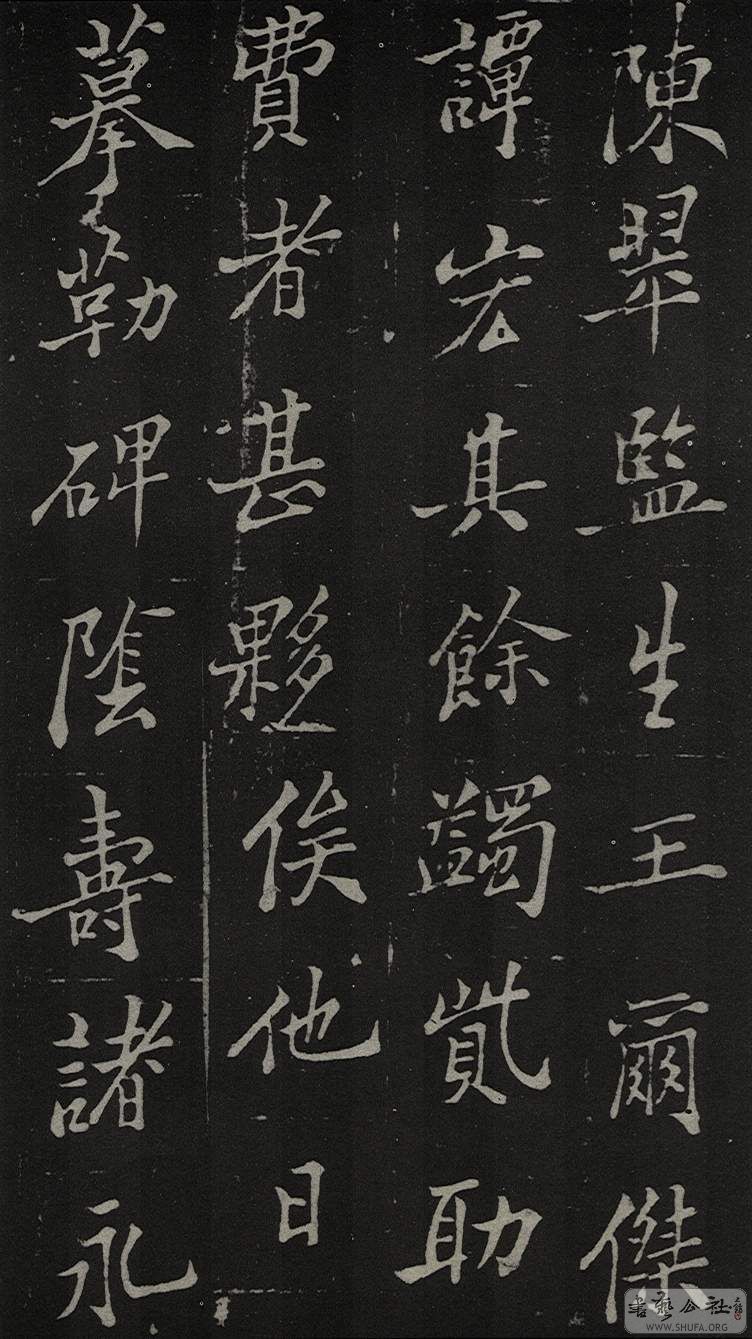 陳翆監生王爾傑
譚宏其餘蠲貲助
費者甚夥俟他日
摹勒碑陰壽諸永
書藝公社
WWW.SHUFA.ORG